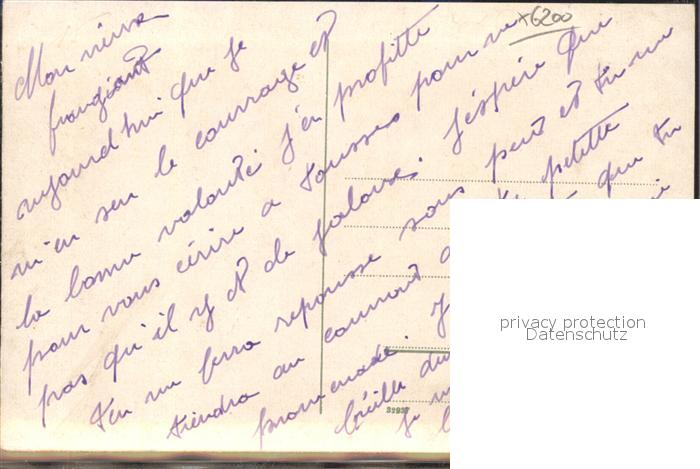 +6200
Mon vieux
frangiant
aujourd'hui que je
m'en sen le courrage et
la bonne volonté j'en profitte
pour vous écrire a tousses pour ne
pas qu'il y et de jalouse. J'éspère que
Tu me ferra reponsse sous peut et tu me
tiendra au courrant petitte
promenade. que tu
32937
privacy protection
Datenschutz